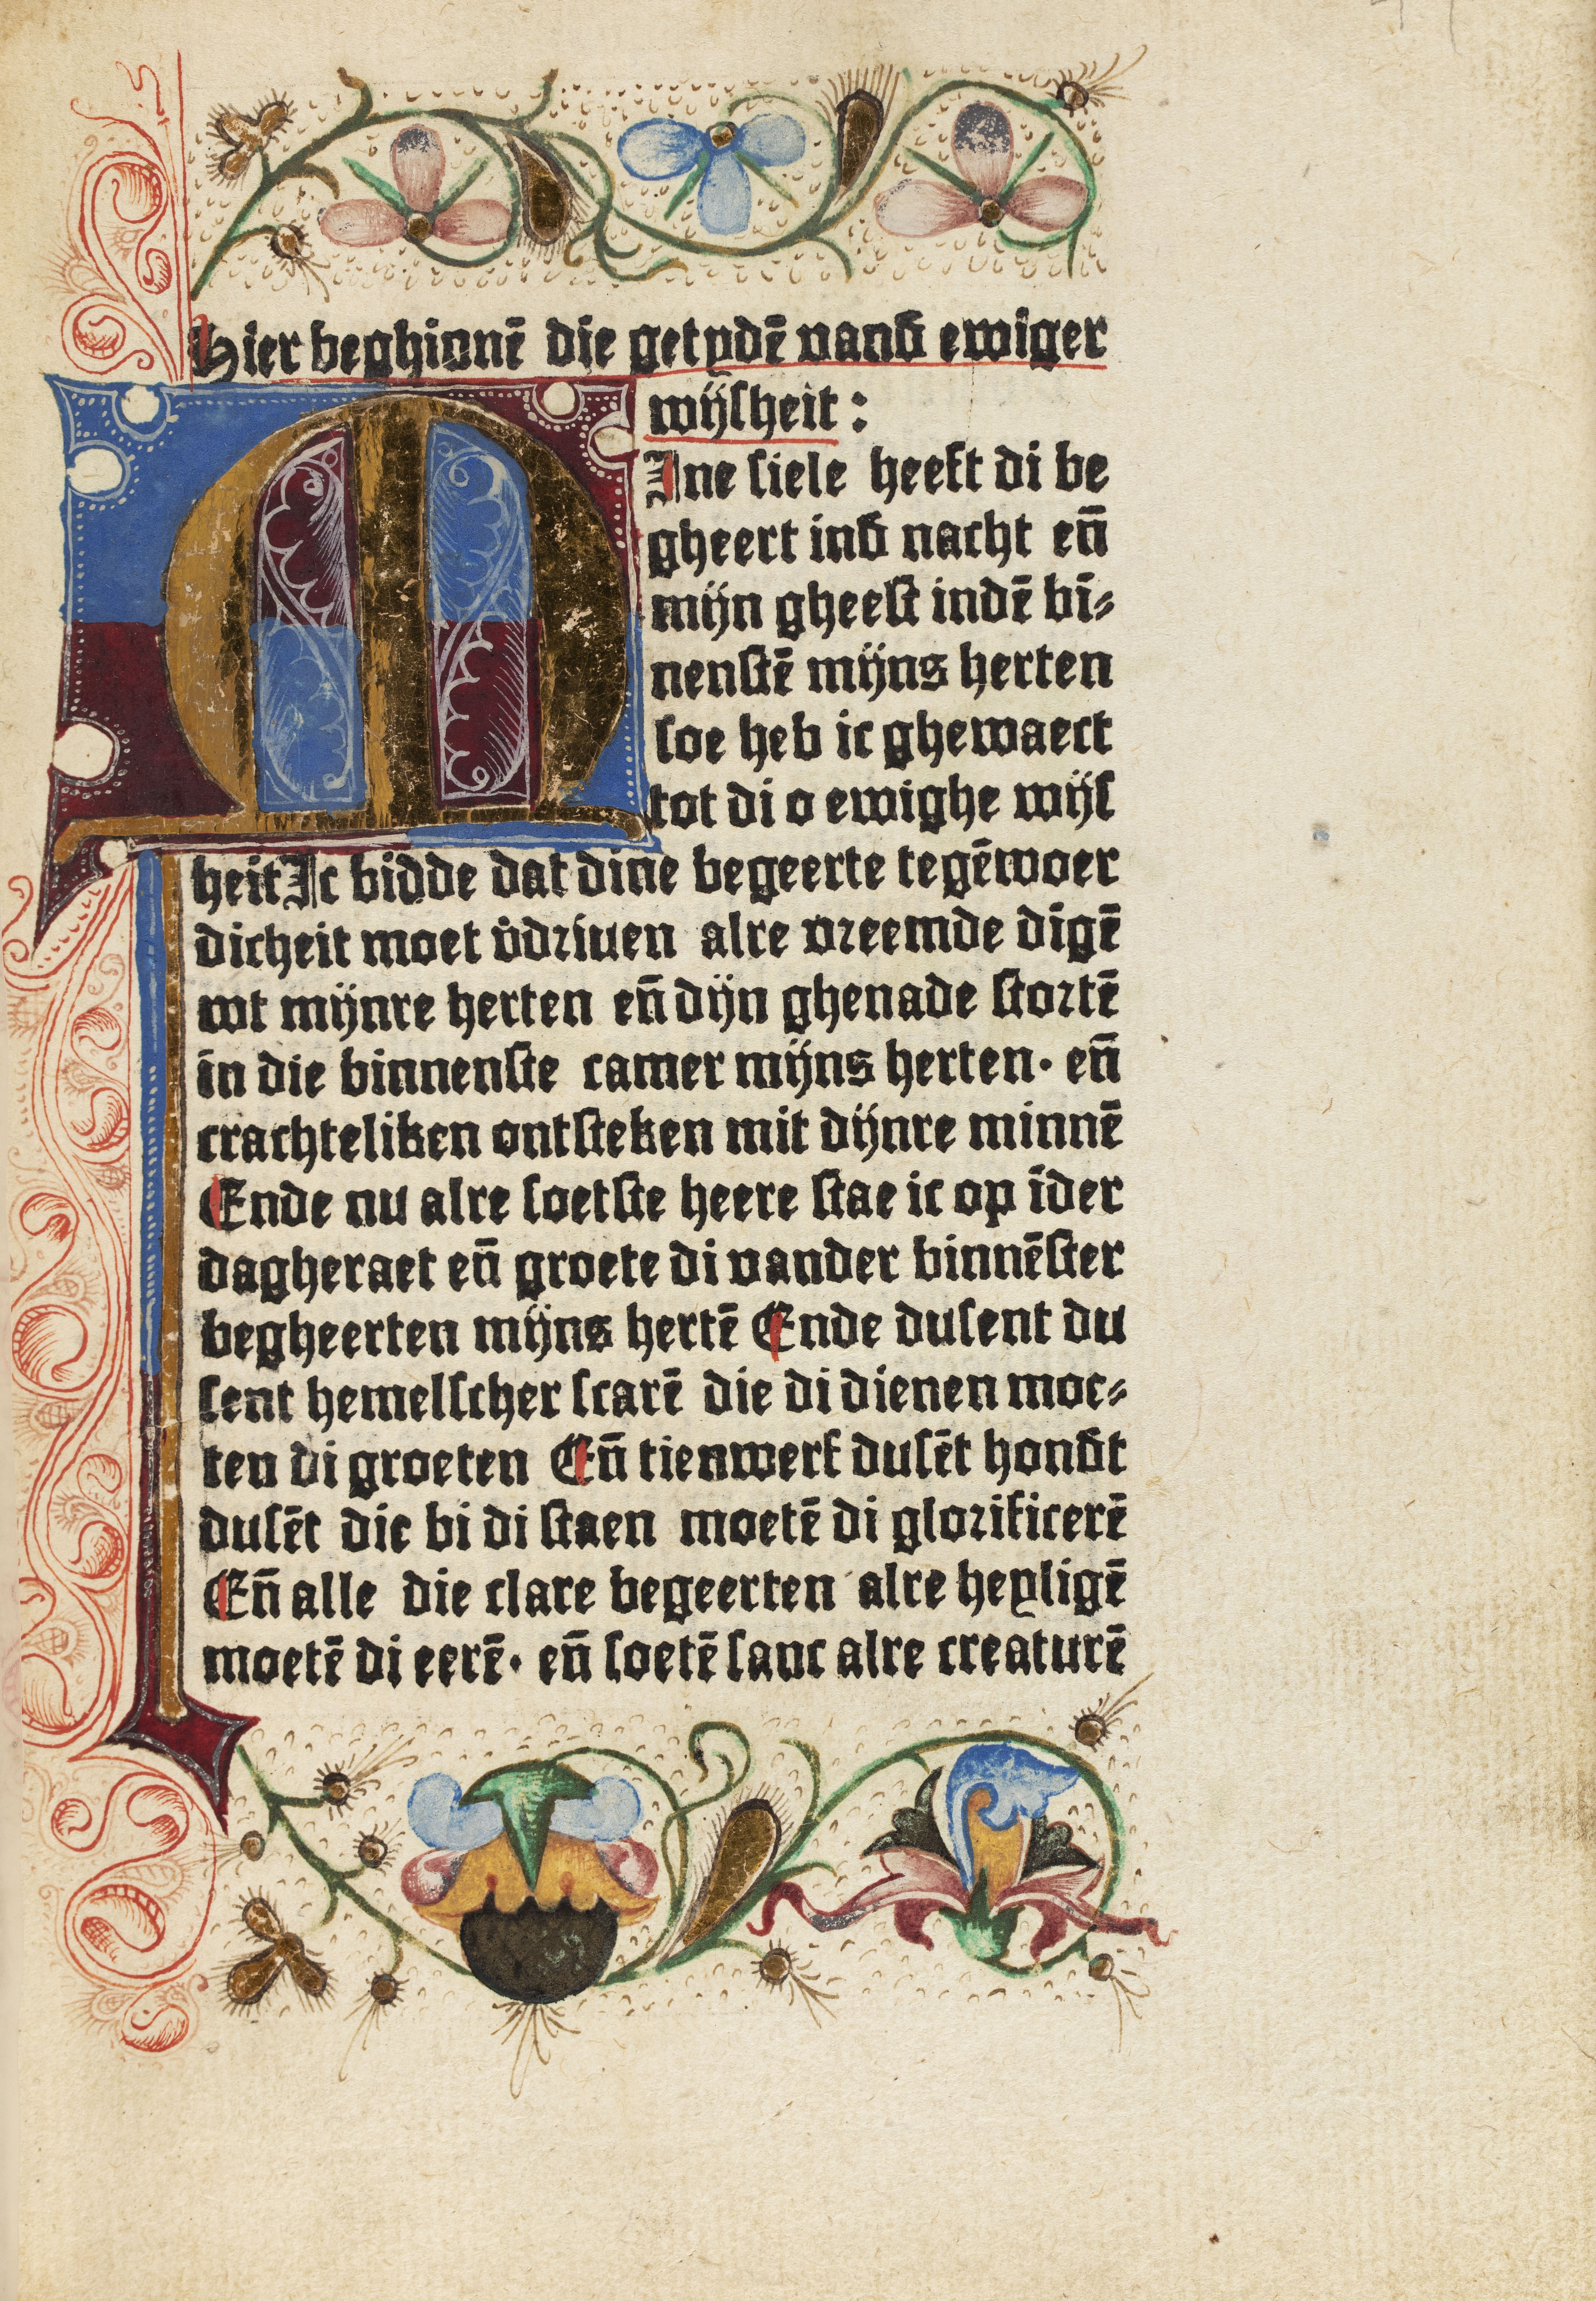 Hier beghinnē die getydē vanđ ewiger
wijſheit :
M Ine ſiele heeft di be
gheert inđ nacht en̄
mijn gheeſt indē bī⸗
nenſtē mijns herten
ſoe heb ic ghewaect
tot di o ewighe wijſ
heit Ic bidde dat dine begeerte tegēwoer
dicheit moet v̾driuen alre vreemde dīgē
wt mijnre herten en̄ dijn ghenade ſtortē
in die binnenſte camer mijns herten· en̄
crachteliken ontſteken mit dijnre minnē
Ende nu alre ſoetſte heere ſtae ic op īder
dagheraet en̄ groete di vander binnēſter
begheerten mijns hertē Ende duſent du
ſent hemelſcher ſcarē die di dienen moe⸗
ten di groeten En̄ tienwerf duſēt honđt
duſēt die bi di ſtaen moetē di glorificerē
En̄ alle die clare begeerten alre heyligē
moetē di eerē· en̄ ſoetē ſanc alre creaturē